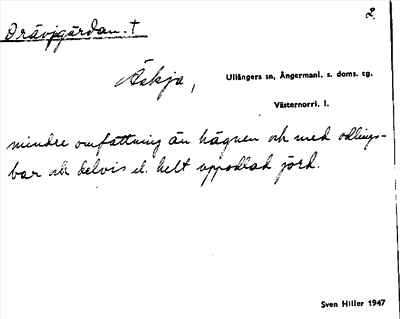 2.
Drävjgärdan. †
Äskja,
Ullångers sn, Ångermanl. s. doms. tg.
Västernorrl. l.
mindre omfattning än hägnen och med odlings-
bar och delvis el. helt uppodlad jord.
Sven Hiller 1947